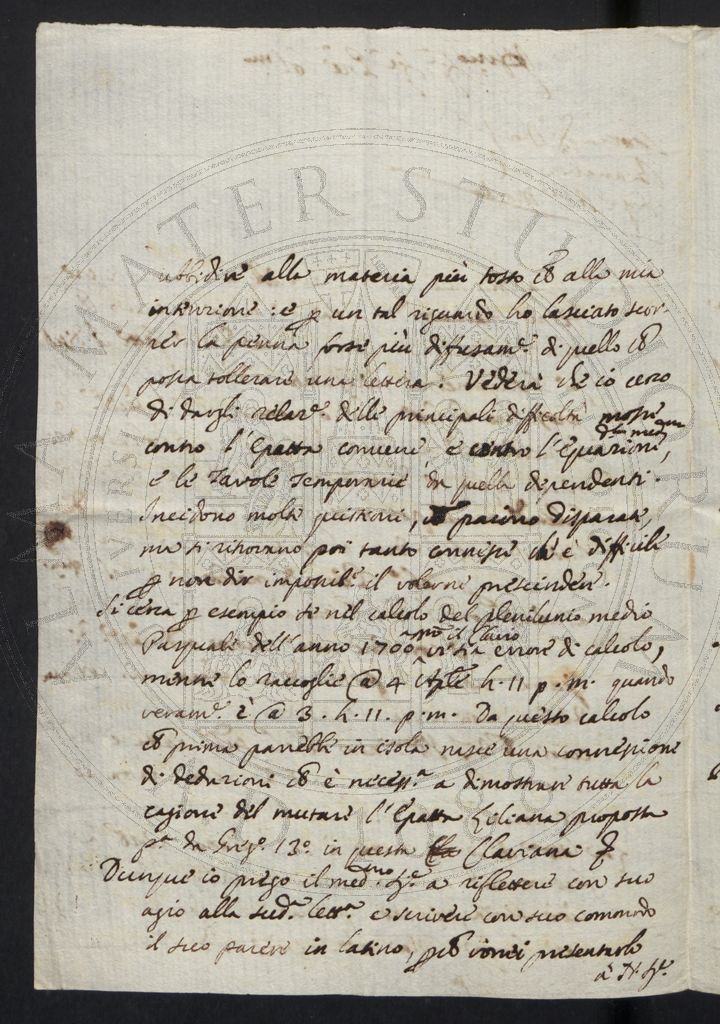 ubbidire alla materia più tosto ch alla mia
intenzione: e p un tal riguardo ho lasciato scor-
rer la penna forse più diffusam.e di quello ch
possa tollerare una lettera. Vederà che io cerco
di dargli relaz.e delle principali difficoltà mosse
contro l'Epatta conviene e contro l'Equazioni,
e le Tavole Temporarie da quella dependenti.
Incidono molte quistioni, ch paiono disparate,
ma si ritrovano poi tanto connesse che è difficile
p non dir impossibil.e il volerne prescindere.
Si cerca p esempio se nel calcolo del plenilunio medio
Pasquale dell'anno 1700 vi sia errore di calcolo,
mentre lo raccoglie @ 4 Aple h. 11 p. m. quando
veram.e è @ 3. h. 11. p. m. Da questo calcolo
ch prima parrebbe in isola nasce una connessione
di deduzioni ch è necess.a a dimostrare tutta la
cagione del mutare l'Epatta Liliana proposta
p.a da Greg.o 13.o in questa Claviana
Dunque io prego il med.mo Sig.e a riflettere con suo
agio alla sud.a lett.a e scrivere con suo comodo
il suo parere in latino, pch vorrei presentarlo
à N. Sig.e